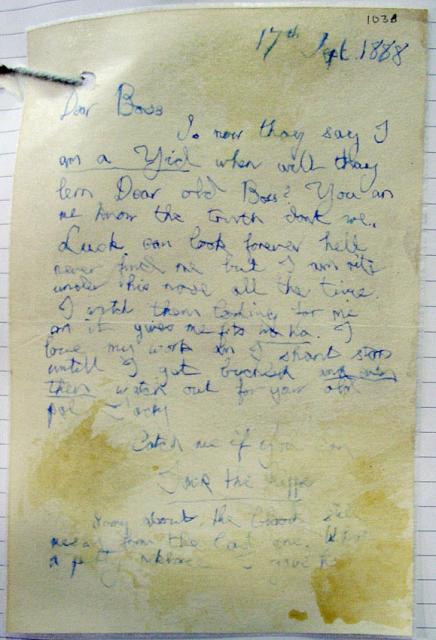 1038
17th Sept 1888
Dear Boss
So now thay say I
am a Yid when will thay
lern Dear old Boss? You an
me know the truth dont we.
Lusk can look forever hell
never find me but I am rite
under his nose all the time.
I watch them looking for me
an it gives me fits ha ha. I
love my work an I shant stop
untill I get buckled and even
then watch out for your old
pal Jacky
Catch me if you can
Jack the Ripper
Sorry about the blood still
messy from the last one. What
a pretty necklace I gave her